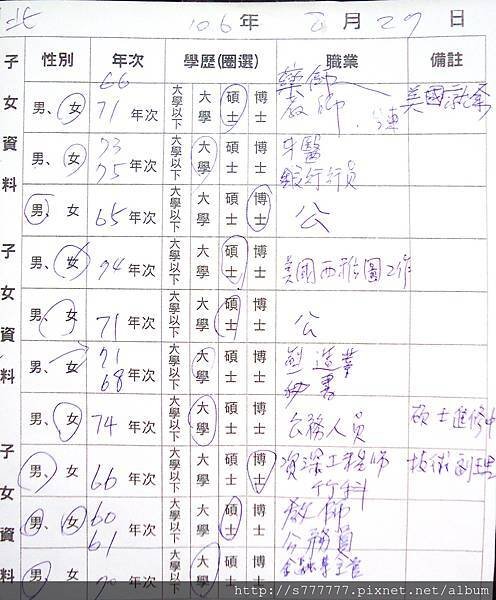 北 106年 8月27日
子女資料 性別 年次 學歷(圈選) 職業 備註
男、女 66 71年次 大學以下 大學 碩士 博士 藥師 教師 美國
男、女 73 75年次 大學以下 大學 碩士 博士 牙醫 銀行行員
男、女 65年次 大學以下 大學 碩士 博士 公
子女資料
男、女 74年次 大學以下 大學 碩士 博士 美國西雅圖工作
男、女 71年次 大學以下 大學 碩士 博士 公
男、女 71 68年次 大學以下 大學 碩士 博士 製造業 秘書
男、女 74年次 大學以下 大學 碩士 博士 公務人員 碩士進修中
子女資料
男、女 66年次 大學以下 大學 碩士 博士 資深工程師 竹科 技術副理
男、女 60 61年次 大學以下 大學 碩士 博士 教師 公務員
男、女 70年次 大學以下 大學 碩士 博士
http://s777777.pixnet.net/album